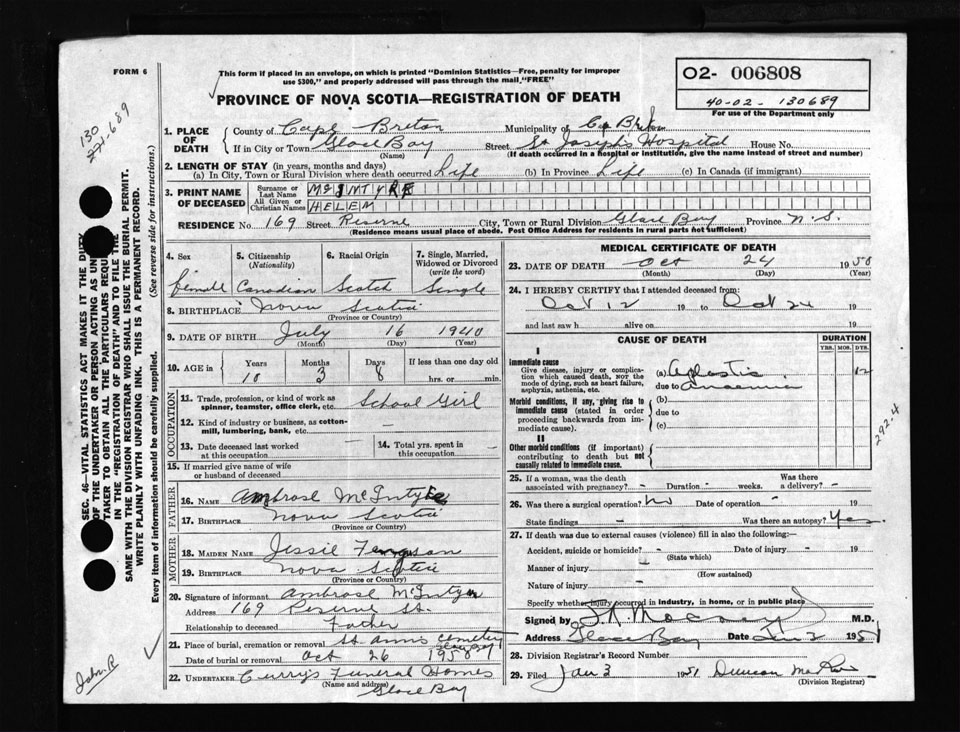 FORM 6
This form if placed in an envelope, on which is printed "Dominion Statistics—Free, penalty for improper
use $300," and properly addressed will pass through the mail, "FREE"
PROVINCE OF NOVA SCOTIA—REGISTRATION OF DEATH
02- 006808
40-02- 130689
For use of the Department only
130
221-689
1. PLACE OF DEATH County of Cape Breton Municipality of C. Breton
If in City or Town Glace Bay Street St Joseph's Hospital House No.
(Name) (If death occurred in a hospital or institution, give the name instead of street and number)
2. LENGTH OF STAY (in years, months and days)
(a) In City, Town or Rural Division where death occurred Life (b) In Province Life (c) In Canada (if immigrant)
3. PRINT NAME OF DECEASED Surname or Last Name McINTYRE
All Given or Christian Names HELEN
RESIDENCE No. 169 Street Reserve City, Town or Rural Division Glace Bay Province N.S.
(Residence means usual place of abode. Post Office Address for residents in rural parts not sufficient)
4. Sex female
5. Citizenship (Nationality) Canadian
6. Racial Origin Scotch
7. Single, Married, Widowed or Divorced (write the word) Single
8. BIRTHPLACE Nova Scotia
(Province or Country)
9. DATE OF BIRTH July 16 1940
(Month) (Day) (Year)
10. AGE in Years Months Days If less than one day old
10 3 8 hrs. or min.
OCCUPATION
11. Trade, profession, or kind of work as spinner, teamster, office clerk, etc. School Girl
12. Kind of industry or business, as cotton-mill, lumbering, bank, etc. —
13. Date deceased last worked at this occupation —
14. Total yrs. spent in this occupation —
15. If married give name of wife or husband of deceased
FATHER
16. NAME Ambrose McIntyre
17. BIRTHPLACE Nova Scotia
(Province or Country)
MOTHER
18. MAIDEN NAME Jessie Ferguson
19. BIRTHPLACE Nova Scotia
(Province or Country)
20. Signature of informant Ambrose McIntyre
Address 169 Reserve St.
Relationship to deceased Father
21. Place of burial, cremation or removal St. Anns Cemetery Glace Bay
Date of burial or removal Oct 26 1950
22. UNDERTAKER Curry's Funeral Homes
(Name and address) Glace Bay
MEDICAL CERTIFICATE OF DEATH
23. DATE OF DEATH Oct 24 1950
(Month) (Day) (Year)
24. I HEREBY CERTIFY that I attended deceased from:
Oct 12 19 to Oct 24 19
and last saw h alive on 19
CAUSE OF DEATH
DURATION
YRS. MOS. DYS.
I
Immediate cause
Give disease, injury or complication which caused death, NOT the mode of dying, such as heart failure, asphyxia, asthenia, etc.
(a) Aplastic 12
due to Anaemia
Morbid conditions, if any, giving rise to immediate cause (stated in order proceeding backwards from immediate cause).
(b)
due to
(c)
II
Other morbid conditions (if important) contributing to death but not causally related to immediate cause.
292.4
25. If a woman, was the death associated with pregnancy? - Duration - weeks. Was there a delivery? -
26. Was there a surgical operation? No Date of operation - 19
State findings - Was there an autopsy? Yes.
27. If death was due to external causes (violence) fill in also the following:—
Accident, suicide or homicide? - Date of injury - 19
(State which)
Manner of injury
(How sustained)
Nature of injury -
Specify whether injury occurred in industry, in home, or in public place
Signed by M.D.
Address Glace Bay Date Jan 2 1951
28. Division Registrar's Record Number
29. Filed Jan 3 1951 Duncan
(Division Registrar)
SEC. 46—VITAL STATISTICS ACT MAKES IT THE DUTY
OF THE UNDERTAKER OR PERSON ACTING AS UN
TAKER TO OBTAIN ALL THE PARTICULARS REQU
IN THE "REGISTRATION OF DEATH" AND TO FILE THE
SAME WITH THE DIVISION REGISTRAR WHO SHALL ISSUE THE BURIAL PERMIT.
WRITE PLAINLY WITH UNFADING INK. THIS IS A PERMANENT RECORD.
Every item of information should be carefully supplied. (See reverse side for instructions.)
John B